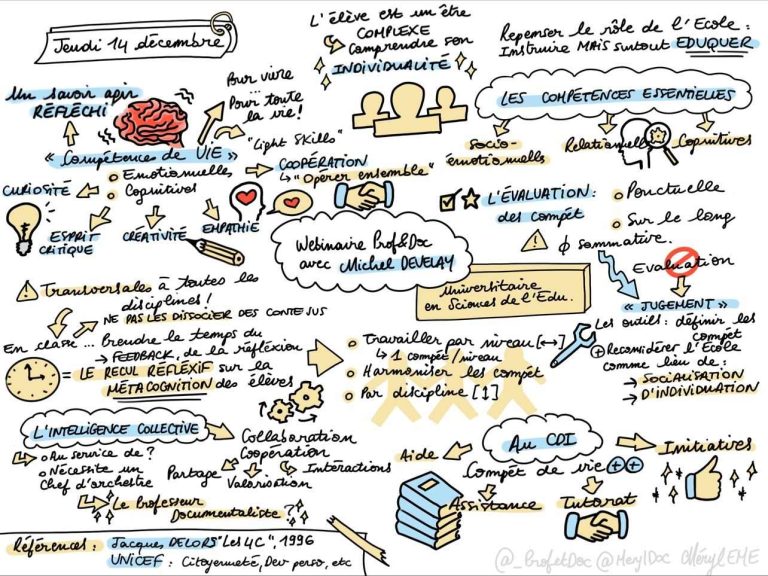 Jeudi 14 décembre
L'élève est un être
COMPLEXE
Comprendre son
INDIVIDUALITÉ
Repenser le rôle de l'Ecole :
Instruire MAIS surtout EDUQUER
Un savoir agir
RÉFLÉCHI
Pour vivre
...
Pour toute
la vie !
LES COMPÉTENCES ESSENTIELLES
Socio-
émotionnelles
Relationnelles
Cognitives
« Compétence de VIE »
Emotionnelles
Cognitives
"Light Skills"
COOPÉRATION
"Opérer ensemble"
CURIOSITÉ
ESPRIT
CRITIQUE
CRÉATIVITÉ
EMPATHIE
L'ÉVALUATION :
des compét
Ponctuelle
Sur le long
φ sommative.
Evaluation
« JUGEMENT »
Webinaire Prof&Doc
avec Michel DEVELAY
Universitaire
en Sciences de l'Edu.
Transversales à toutes les
disciplines !
NE PAS LES DISSOCIER DES CONTENUS
En classe... Prendre le temps du
→ FEEDBACK, de la réflexion
= LE RECUL RÉFLEXIF sur la
MÉTACOGNITION des élèves
Travailler par niveau [↔]
↳ 1 compét/niveau
Harmoniser les compét
Par discipline [↕]
Les outils : définir les
compét
+ Reconsidérer l'Ecole
comme lieu de :
→ SOCIALISATION
→ D'INDIVIDUATION
L'INTELLIGENCE COLLECTIVE
Au service de ?
Nécessite un
Chef d'orchestre
Le Professeur
Documentaliste ?
Collaboration
Coopération
Partage
Valorisation
Intéractions
Au CDI
Compét de vie ++
Aide
Initiatives
Assistance
Tutorat
Références : Jacques DELORS "Les 4C", 1996
UNICEF : Citoyenneté, Dev perso, etc
@_ProfetDoc @MerylDoc MérylEME